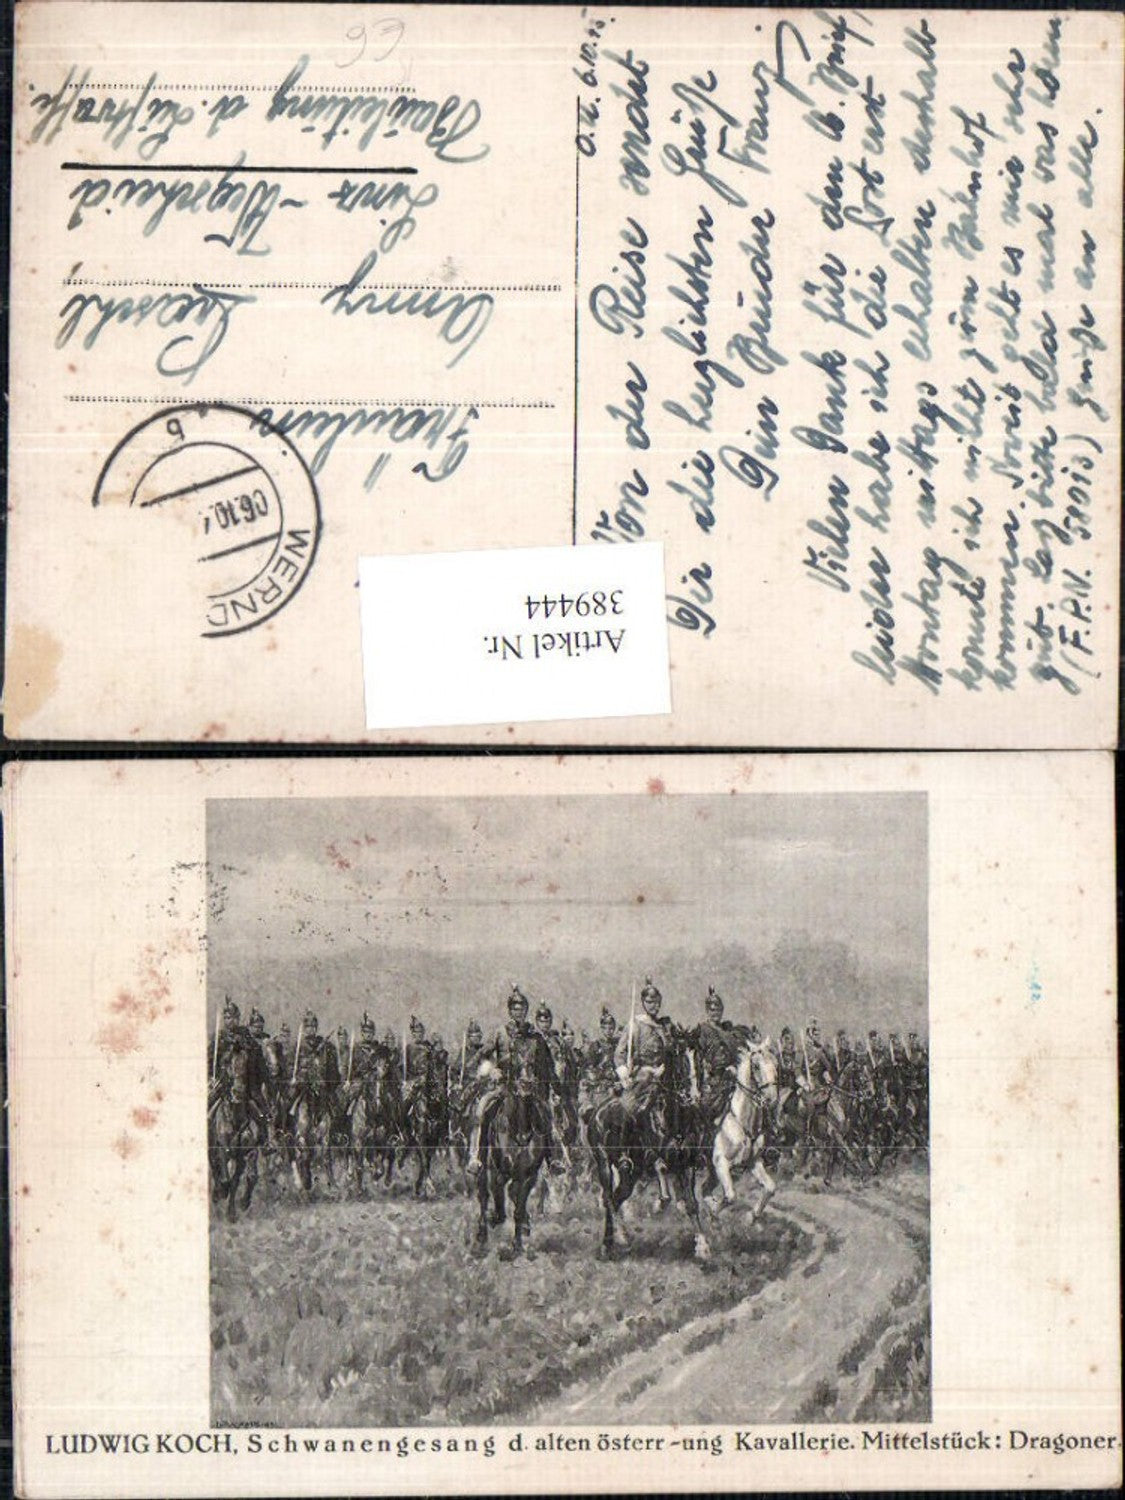 O.U. 6.10.
Von der Reise sendet
Dir die herzlichsten Grüße
Dein Bruder Franz
Vielen Dank für den lb. Brief,
leider habe ich die Post erst
Montag mittags erhalten deshalb
konnte ich nicht zum Bahnhof
kommen. Soweit geht es mir sehr
gut. Laß bitte bald mal was hören
(F.P.N.) Grüße an alle.
Fräulein
Anny
Linz-Wegscheid
Bauleitung d.
WERND
06.10.
b
Artikel Nr.
389444
LUDWIG KOCH, Schwanengesang d. alten österr-ung Kavallerie. Mittelstück: Dragoner.